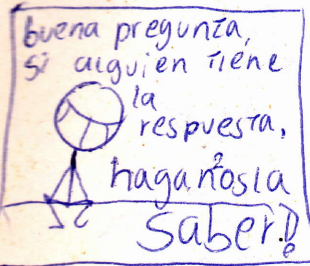 buena pregunta,
si alguien tiene
la
respuesta,
haganosla
saber!